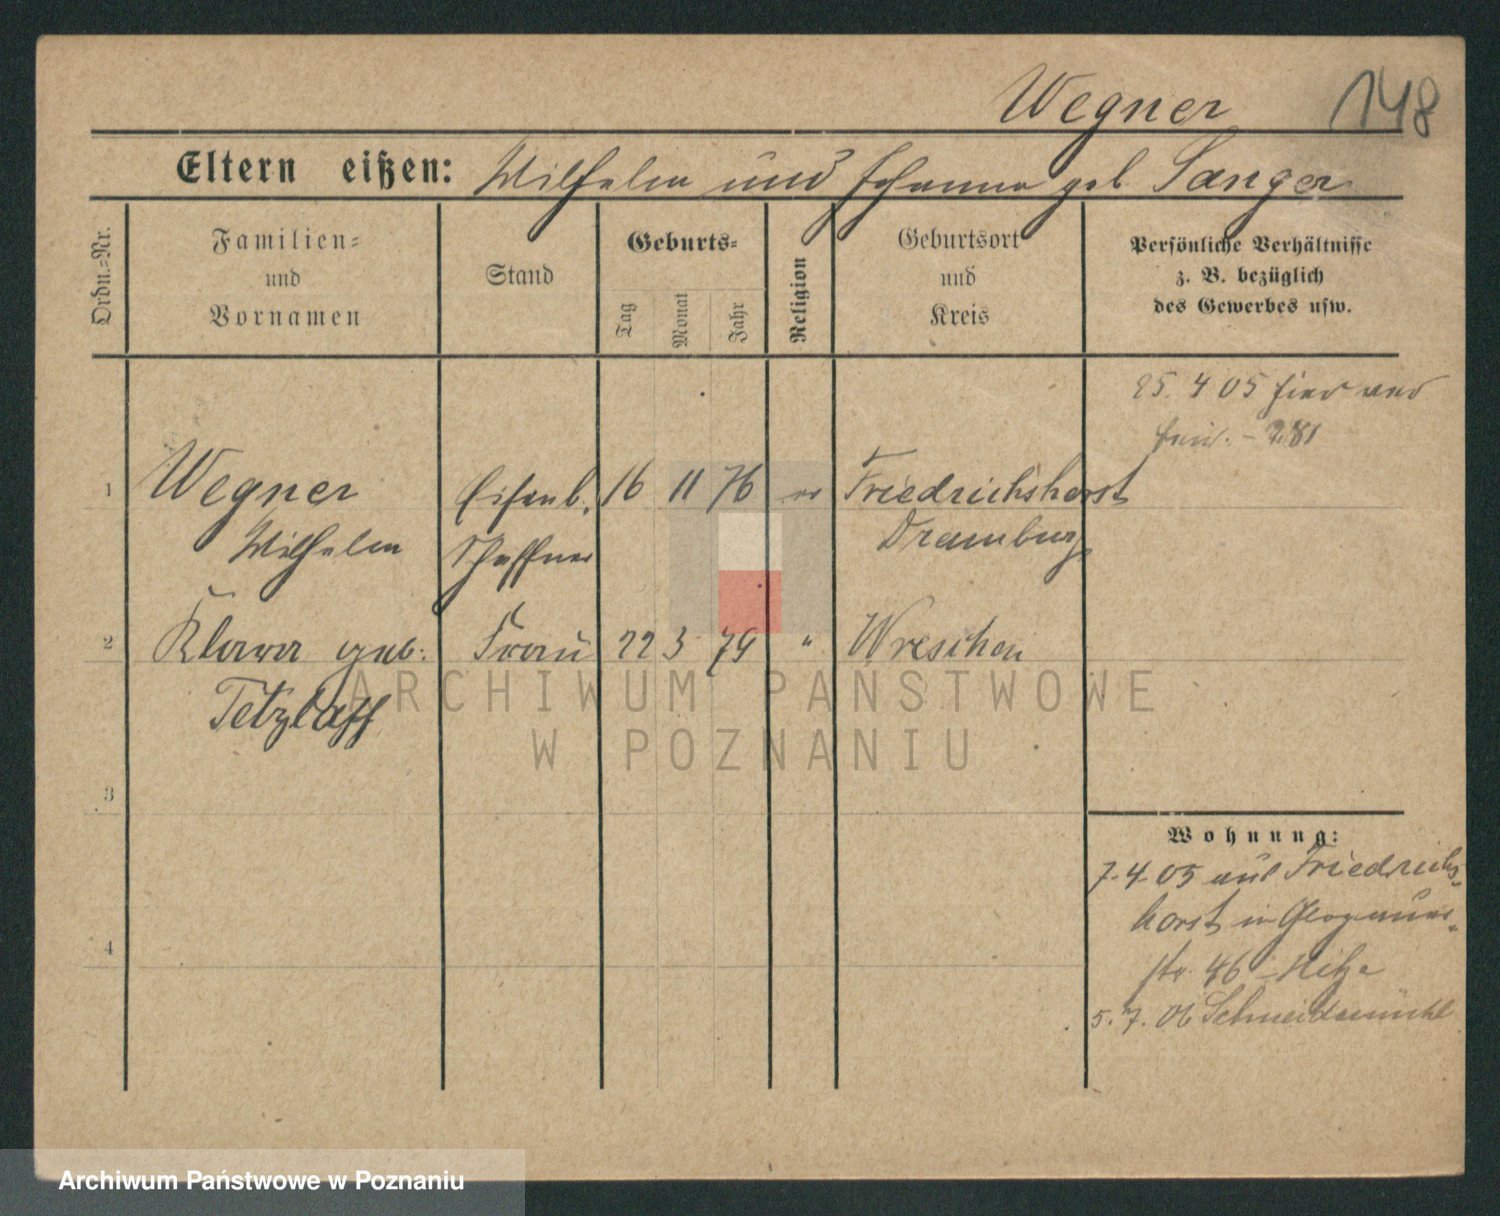 Wegner 148
Eltern eißen: Wilhelm und Johanna geb Sanger
Ordn.=Nr.
Familien=
und
Vornamen
Stand
Geburts=
Tag
Monat
Jahr
Religion
Geburtsort
und
Kreis
Persönliche Verhältnisse
z. B. bezüglich
des Gewerbes usw.
25. 4 05 hier
281
1 Wegner Eisenb. 16 11 76 ev Friedrichshorst
Wilhelm Schaffner Dramburg
2 Klara geb. Frau 22 3 79 " Wreschen
Tetzlaff
3
4
Wohnung:
7.4.05 aus Friedrichs-
horst in Glogauer-
str. 46 - Hitze
5.7.06 Schneidemühl
ARCHIWUM PAŃSTWOWE
W POZNANIU
Archiwum Państwowe w Poznaniu